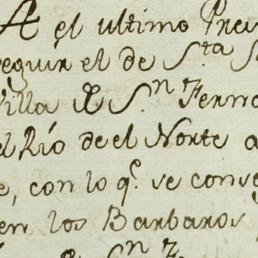 A el ultimo Presi
seguir el de S.ta S
Villa de S.n Ferna
el Río de el Norte a
e, con lo q.e se conse
en los Barbaros